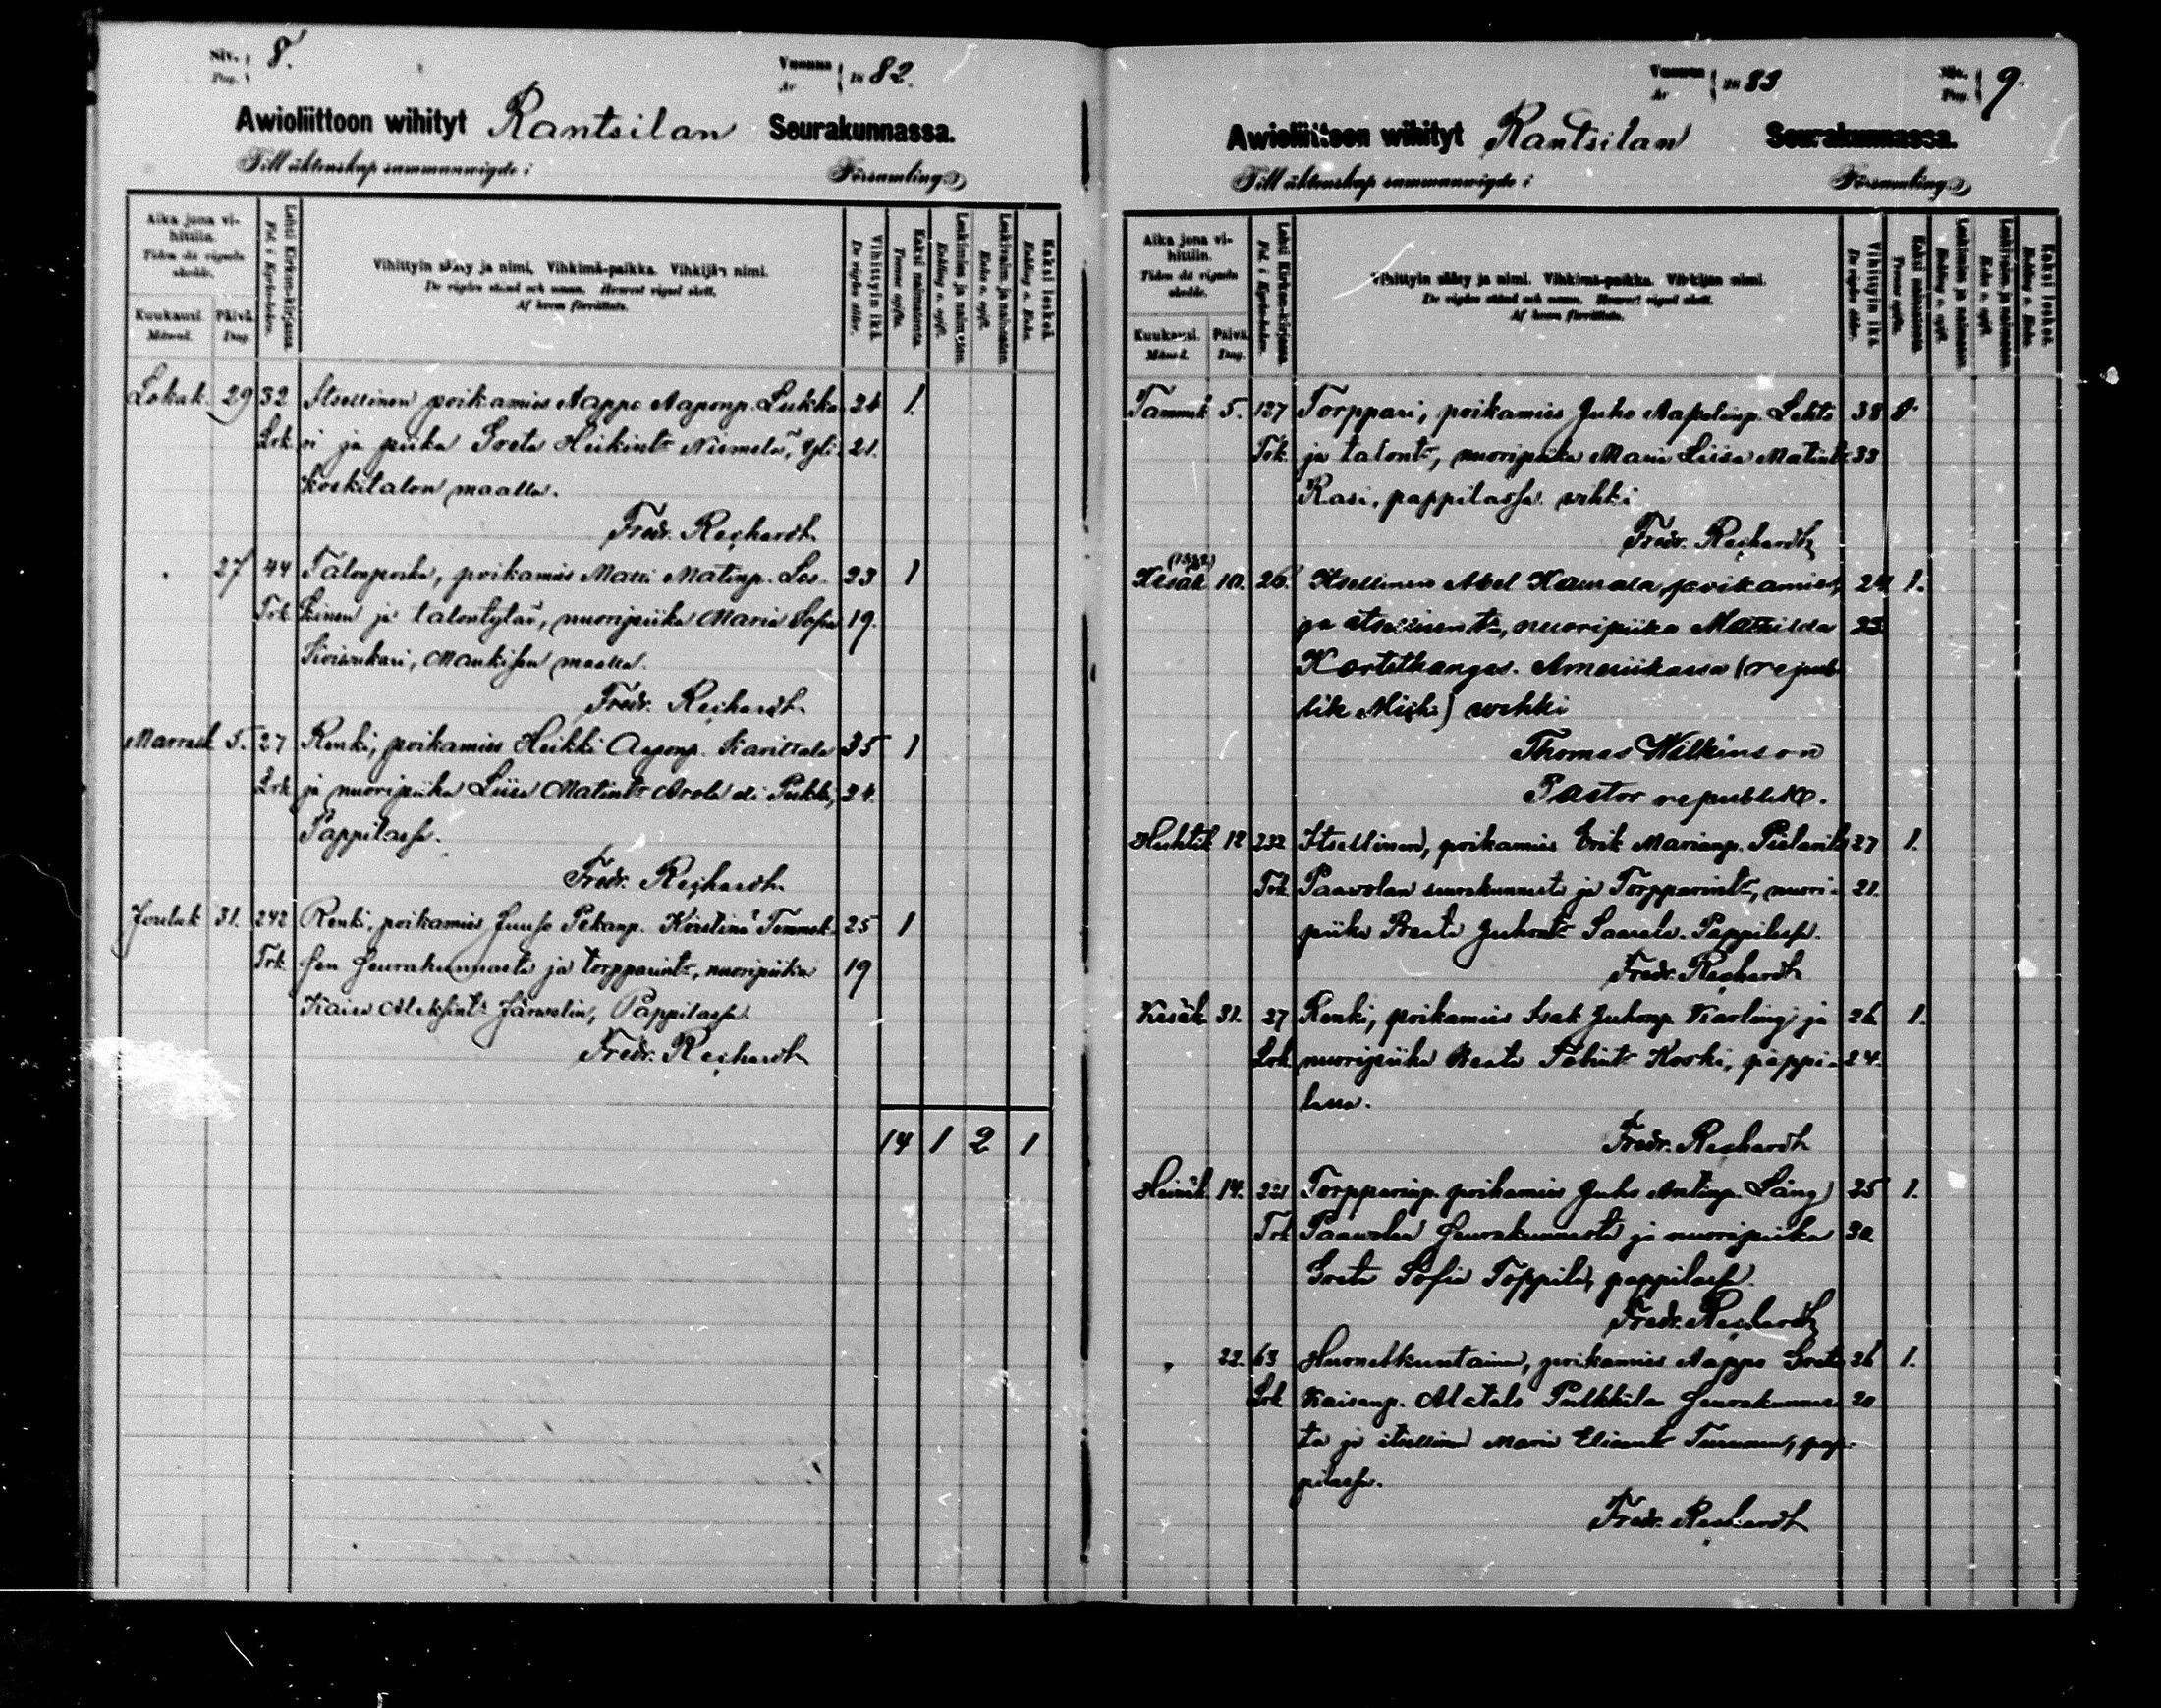 Siv. Pag. 8. Vuonna År 1882.
Awioliittoon wihityt Rantsilan Seurakunnassa.
Till äktenskap sammanwigde i Församling
Aika jona vihittiin. Tiden då vigseln skedde.
Kuukausi. Månad. Päivä. Dag.
Lehti Kirkon-kirjassa. Fol. i Kyrko-boken.
Vihittyin sääty ja nimi. Vihkimä-paikka. Vihkijän nimi.
De vigdas stånd och namn. Hvarest vigsel skett.
Af hvem förrättats.
Vihittyin ikä. De vigdas ålder.
Kaksi naimatonta. Tvenne ogifta.
Leskimies ja naimaton. Enkling o. ogift.
Leskivaim. ja naimaton. Enka o. ogift.
Kaksi leskeä. Enkling o. Enka.
Lokak. 29 32 Itsellinen poikamies Aappo Aaponp. Lukka- 24 1.
Lrk. ri ja piika Greta Heikint. Niemelä, Yli- 21.
koskitalon maalla.
Fredr. Reichardt
27 44 Talonpoika, poikamies Matti Matinp. Les- 23 1
Trk. kinen ja talontytär, nuoripiika Maria Sofia 19.
maalla.
Fredr. Reichardt
Marrask 5. 27 Renki, poikamies Heikki Aaponp. 35 1
Lrk ja nuoripiika Liisa Matint. Arola 24.
Pappilassa.
Fredr. Reichardt
Jouluk 31. 242 Renki, poikamies Juuso Pekanp. 25 1
Trk. sen seurakunnasta ja torpparint., nuoripiika 19
Kaisa Järvelin, Pappilassa.
Fredr. Reichardt
14 1 2 1
Vuonna År 1883 Siv. Pag. 9.
Awioliittoon wihityt Rantsilan Seurakunnassa.
Till äktenskap sammanwigde i Församling
Aika jona vihittiin. Tiden då vigseln skedde.
Kuukausi. Månad. Päivä. Dag.
Lehti Kirkon-kirjassa. Fol. i Kyrko-boken.
Vihittyin sääty ja nimi. Vihkimä-paikka. Vihkijän nimi.
De vigdas stånd och namn. Hvarest vigsel skett.
Af hvem förrättats.
Vihittyin ikä. De vigdas ålder.
Kaksi naimatonta. Tvenne ogifta.
Leskimies ja naimaton. Enkling o. ogift.
Leskivaim. ja naimaton. Enka o. ogift.
Kaksi leskeä. Enkling o. Enka.
Tammik 5. 127 Torppari, poikamies Juho Aapelinp. Lehto 38
Trk. ja talont., nuoripiika Maria Liisa Matint. 33
Rasi, pappilassa vihki
Fredr. Reichardt
(1882)
Kesäk 10. 26. Itsellinen Abel Kaurala, poikamies, 24 1.
ja itsellisen t., nuoripiika Mathilda 23
Kortetkangas. Ameriikassa (repub
lik Mich:) wihki
Thomas Wilkinson
Pastor republik.
Huhtik 12 232 Itsellinen, poikamies Erik Marianp. 27 1.
Trk Paavolan seurakunnasta ja Torpparint., nuori- 21.
piika Beata Juhont. Saarela. Pappilassa.
Fredr. Reichardt
Kesäk. 31. 27 Renki, poikamies Isak Juhonp. Karling ja 26 1.
Lrk. nuoripiika Beata Koski, pappi- 24.
lassa.
Fredr. Reichardt
Heinäk. 14. 221 Torpparinp. poikamies Juho Antinp. Lång 25 1.
Trk Paavolan seurakunnasta ja nuoripiika 30
Greta Sofia Toppila, pappilassa.
Fredr. Reichardt
" 22. 63 Huonetkuntainen, poikamies Aappo Greta 26 1.
Lrk Kaisanp. Alatalo Pulkkilan seurakunnas 20
ta ja itsellinen Maria Turunen, pap-
pilassa.
Fredr. Reichardt